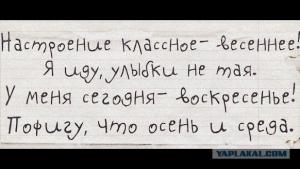 Настроение классное- весеннее!
Я иду, улыбки не тая.
У меня сегодня- воскресенье!
Пофигу, что осень и среда.
YAPLAKAL.COM